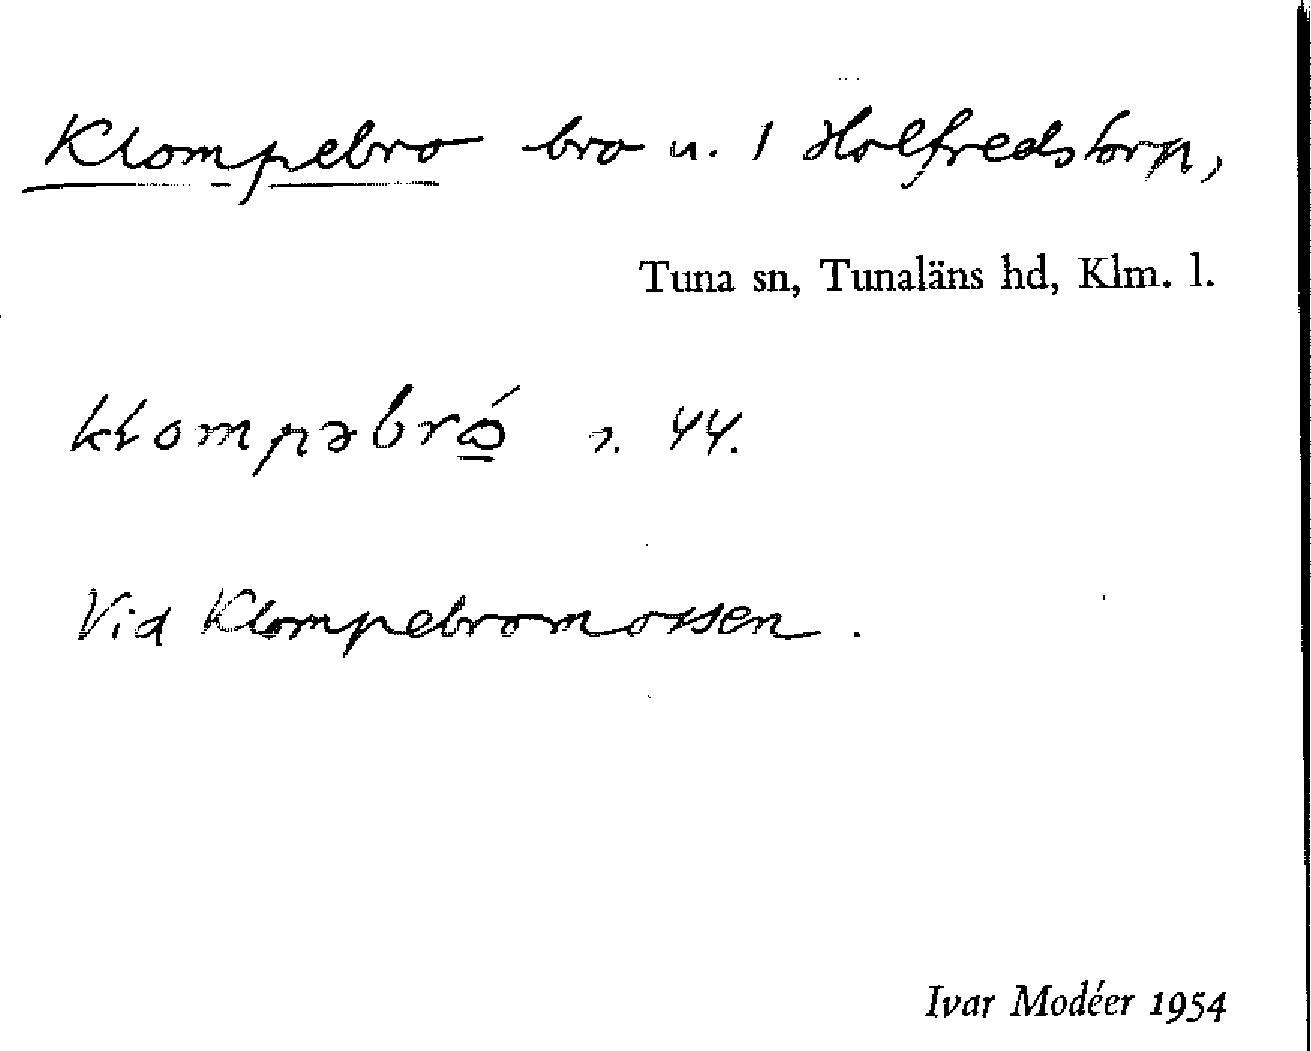 Klompebro bro u. 1 Holfredstorp,
Tuna sn, Tunaläns hd, Klm. l.
kłompəbrǿ s. 44.
Vid Klompebromossen.
Ivar Modéer 1954